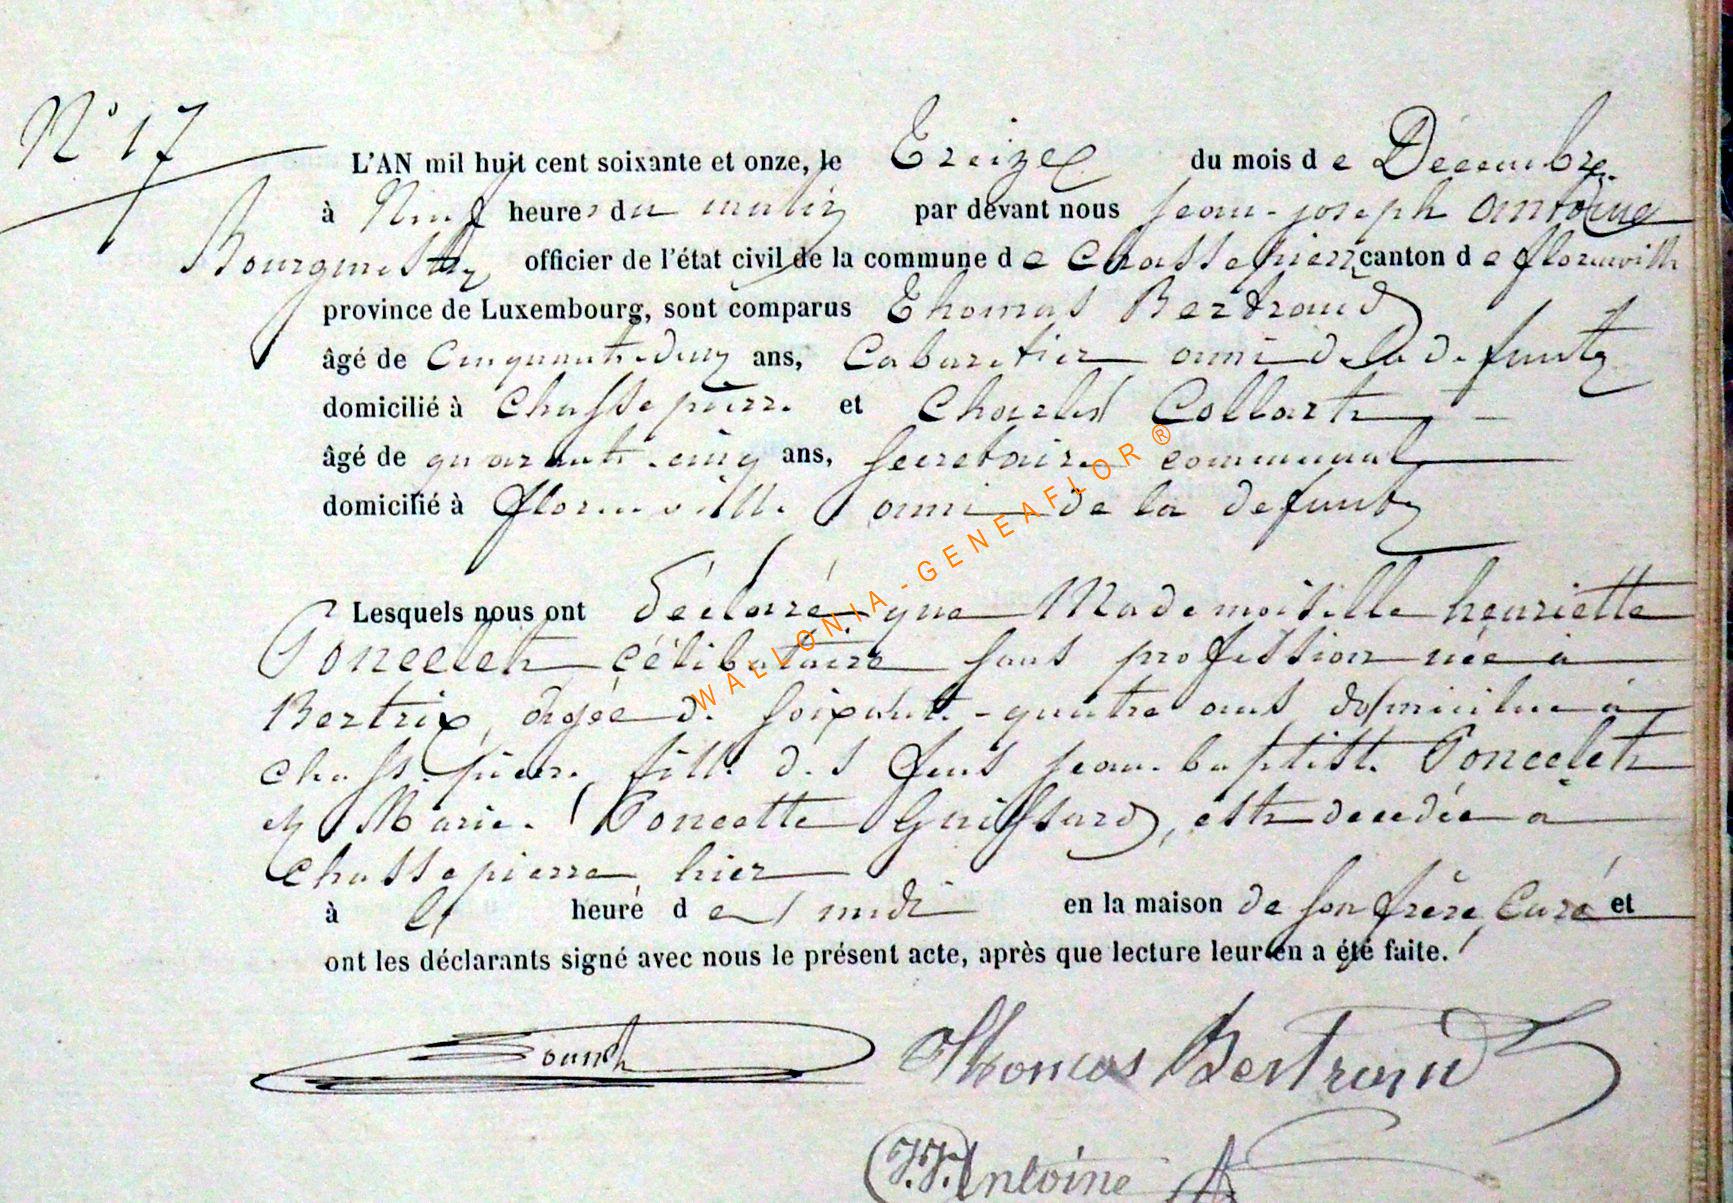 N° 17
L'AN mil huit cent soixante et onze, le Treize du mois de Décembre
à Neuf heures du matin par devant nous jean-joseph antoine
Bourgmestre officier de l'état civil de la commune de Chassepierre canton de florenville
province de Luxembourg, sont comparus Thomas Bertrand
âgé de Cinquante-deux ans, Cabaretier ami de la defunte
domicilié à Chassepierre et Charles Collart
âgé de quarante-cinq ans, Secretaire communal
domicilié à florenville ami de la defunte
Lesquels nous ont déclaré que Mademoiselle henriette
Poncelet célibataire sans profession née à
Bertrix, âgée de soixante-quatre ans domiciliée à
chassepierre, fille des feus jean-baptiste Poncelet
et Marie Poncette Guissard, est decedée à
Chassepierre hier
à heure de midi en la maison de son frère, Curé et
ont les déclarants signé avec nous le présent acte, après que lecture leur en a été faite.
Thomas Bertrand
J.J. Antoine
WALLONIA-GENEAFLOR ®